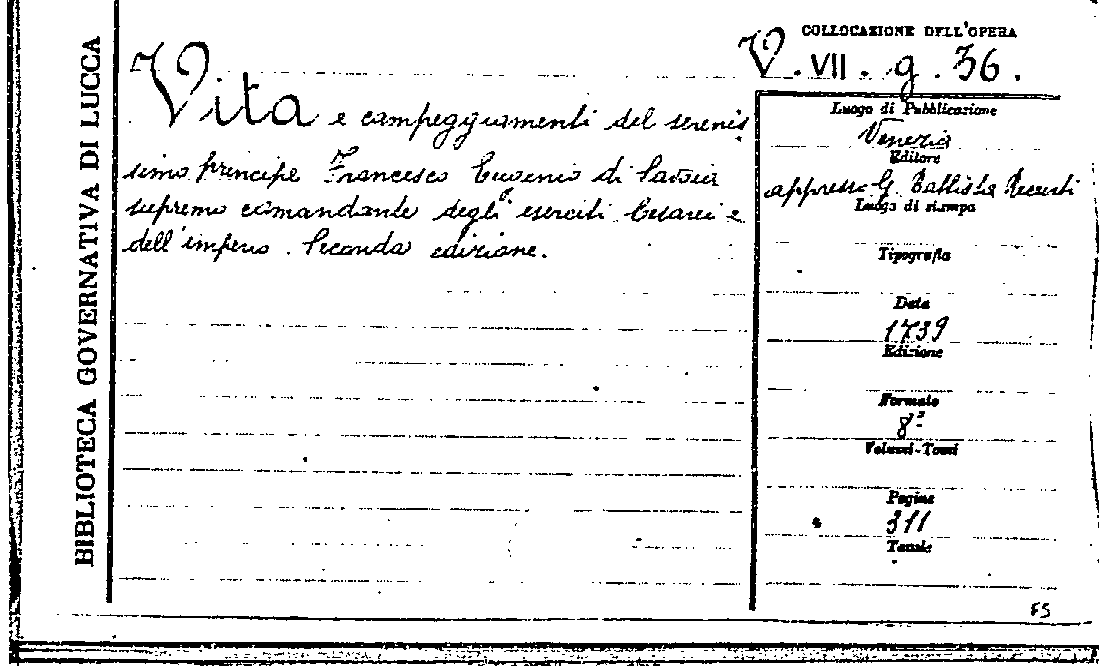 BIBLIOTECA GOVERNATIVA DI LUCCA
COLLOCAZIONE DELL'OPERA
V. VII. g. 36.
Vita e campeggiamenti del serenis
simo principe Francesco Eugenio di Savoia
supremo comandante degli eserciti Cesarei e
dell'impero. Seconda edizione.
Luogo di Pubblicazione
Venezia
Editore
appresso G. Battista Recurti
Luogo di stampa
Tipografia
Data
1739
Edizione
Formato
8º
Volumi-Tomi
Pagine
311
Tavole
FS